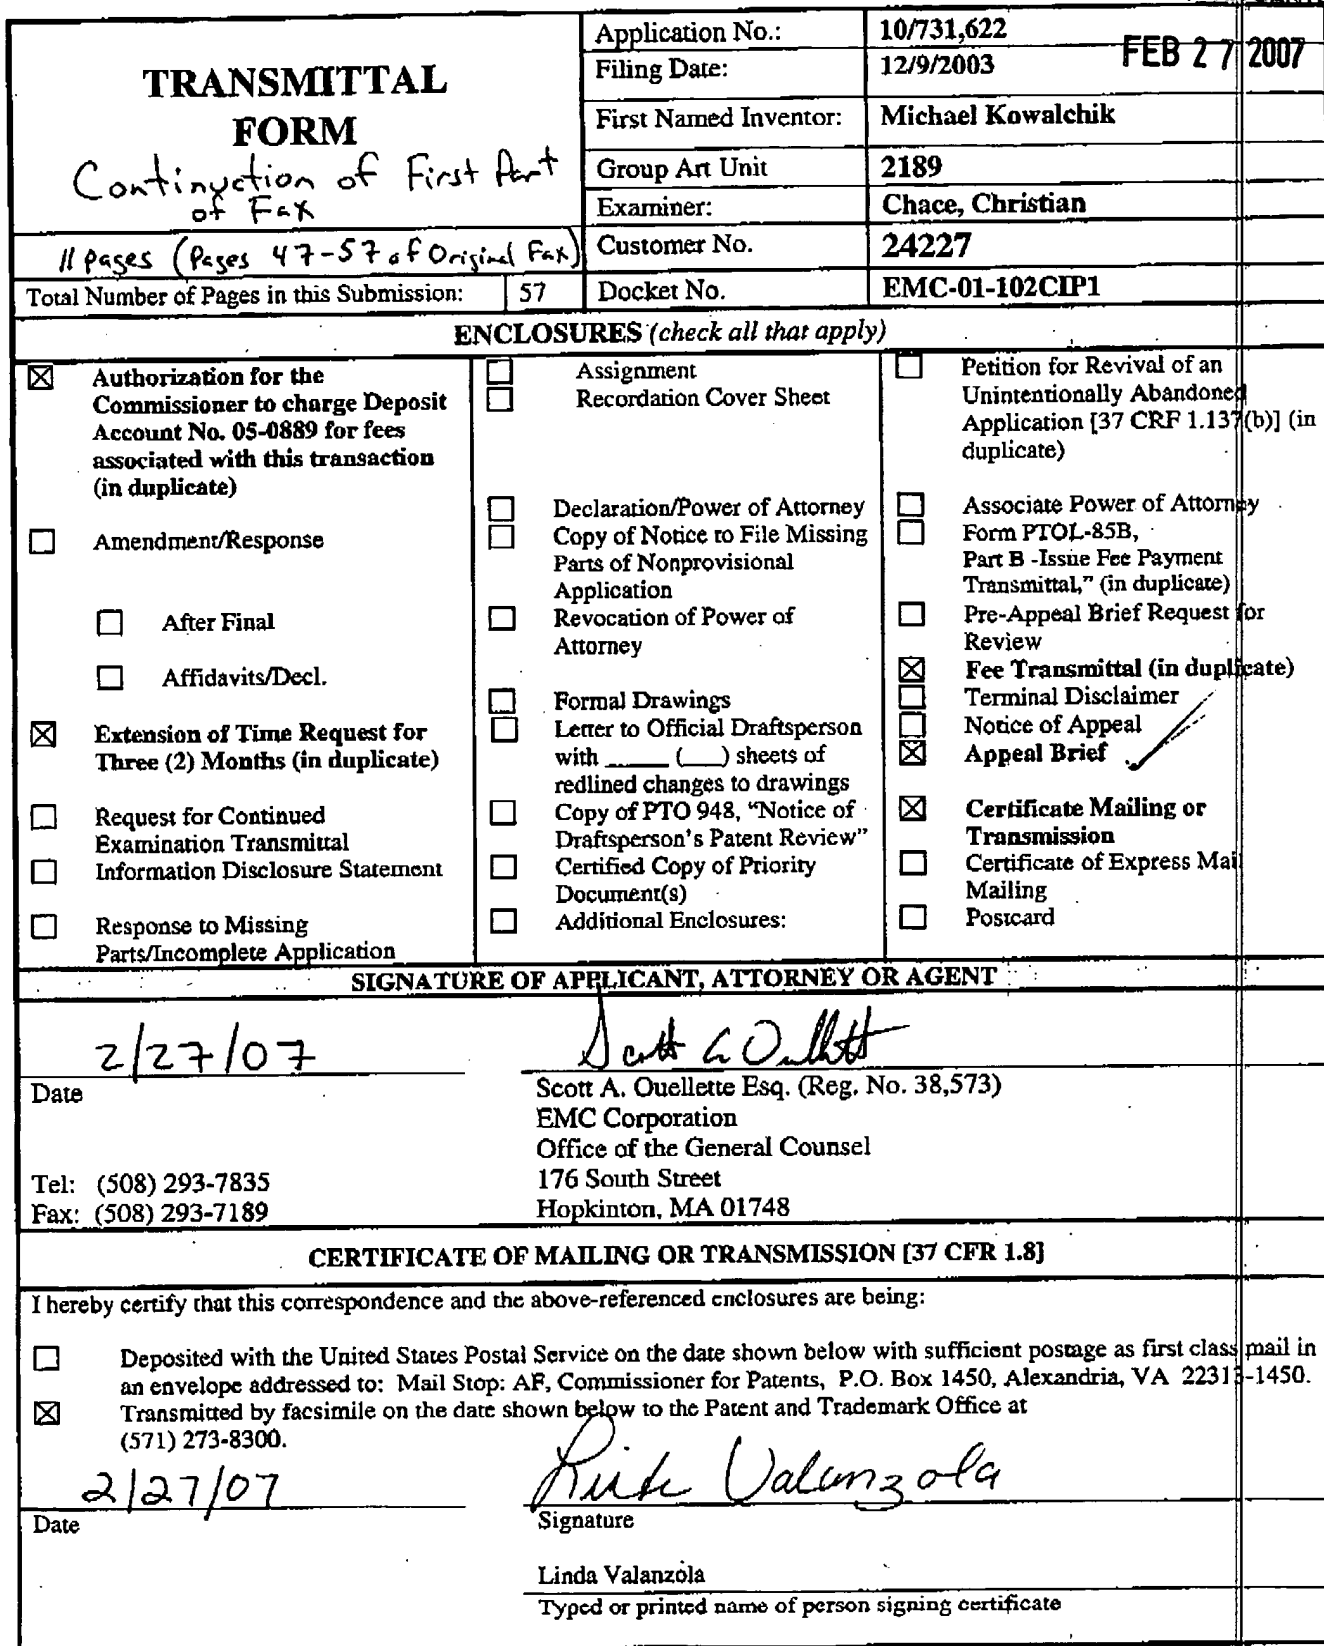 TRANSMITTAL
FORM
Continuation of First Part
of Fax
11 pages (Pages 47-57 of Original Fax)
Total Number of Pages in this Submission: 57
Application No.: 10/731,622
FEB 27 2007
Filing Date: 12/9/2003
First Named Inventor: Michael Kowalchik
Group Art Unit 2189
Examiner: Chace, Christian
Customer No. 24227
Docket No. EMC-01-102CIP1
ENCLOSURES (check all that apply)
☒ Authorization for the
Commissioner to charge Deposit
Account No. 05-0889 for fees
associated with this transaction
(in duplicate)
☐ Amendment/Response
☐ After Final
☐ Affidavits/Decl.
☒ Extension of Time Request for
Three (2) Months (in duplicate)
☐ Request for Continued
Examination Transmittal
☐ Information Disclosure Statement
☐ Response to Missing
Parts/Incomplete Application
☐ Assignment
☐ Recordation Cover Sheet
☐ Declaration/Power of Attorney
☐ Copy of Notice to File Missing
Parts of Nonprovisional
Application
☐ Revocation of Power of
Attorney
☐ Formal Drawings
☐ Letter to Official Draftsperson
with ______ (___) sheets of
redlined changes to drawings
☐ Copy of PTO 948, "Notice of
Draftsperson's Patent Review"
☐ Certified Copy of Priority
Document(s)
☐ Additional Enclosures:
☐ Petition for Revival of an
Unintentionally Abandoned
Application [37 CRF 1.137(b)] (in
duplicate)
☐ Associate Power of Attorney
☐ Form PTOL-85B,
Part B -Issue Fee Payment
Transmittal," (in duplicate)
☐ Pre-Appeal Brief Request for
Review
☒ Fee Transmittal (in duplicate)
☐ Terminal Disclaimer
☐ Notice of Appeal
☒ Appeal Brief
☒ Certificate Mailing or
Transmission
☐ Certificate of Express Mail
Mailing
☐ Postcard
SIGNATURE OF APPLICANT, ATTORNEY OR AGENT
2/27/07
Date
Scott A. Ouellette Esq. (Reg. No. 38,573)
EMC Corporation
Office of the General Counsel
Tel: (508) 293-7835 176 South Street
Fax: (508) 293-7189 Hopkinton, MA 01748
CERTIFICATE OF MAILING OR TRANSMISSION [37 CFR 1.8]
I hereby certify that this correspondence and the above-referenced enclosures are being:
☐ Deposited with the United States Postal Service on the date shown below with sufficient postage as first class mail in
an envelope addressed to: Mail Stop: AF, Commissioner for Patents, P.O. Box 1450, Alexandria, VA 22313-1450.
☒ Transmitted by facsimile on the date shown below to the Patent and Trademark Office at
(571) 273-8300.
2/27/07 Valanzola
Date Signature
Linda Valanzola
Typed or printed name of person signing certificate